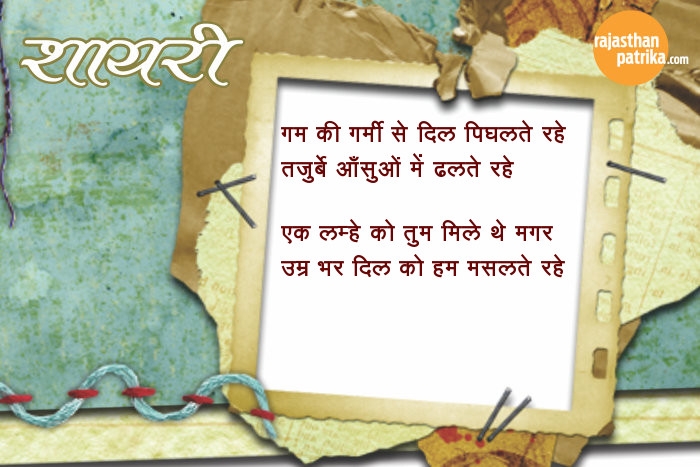 शायरी
rajasthan
patrika.com
गम की गर्मी से दिल पिघलते रहे
तजुर्बे आँसुओं में ढलते रहे
एक लम्हे को तुम मिले थे मगर
उम्र भर दिल को हम मसलते रहे